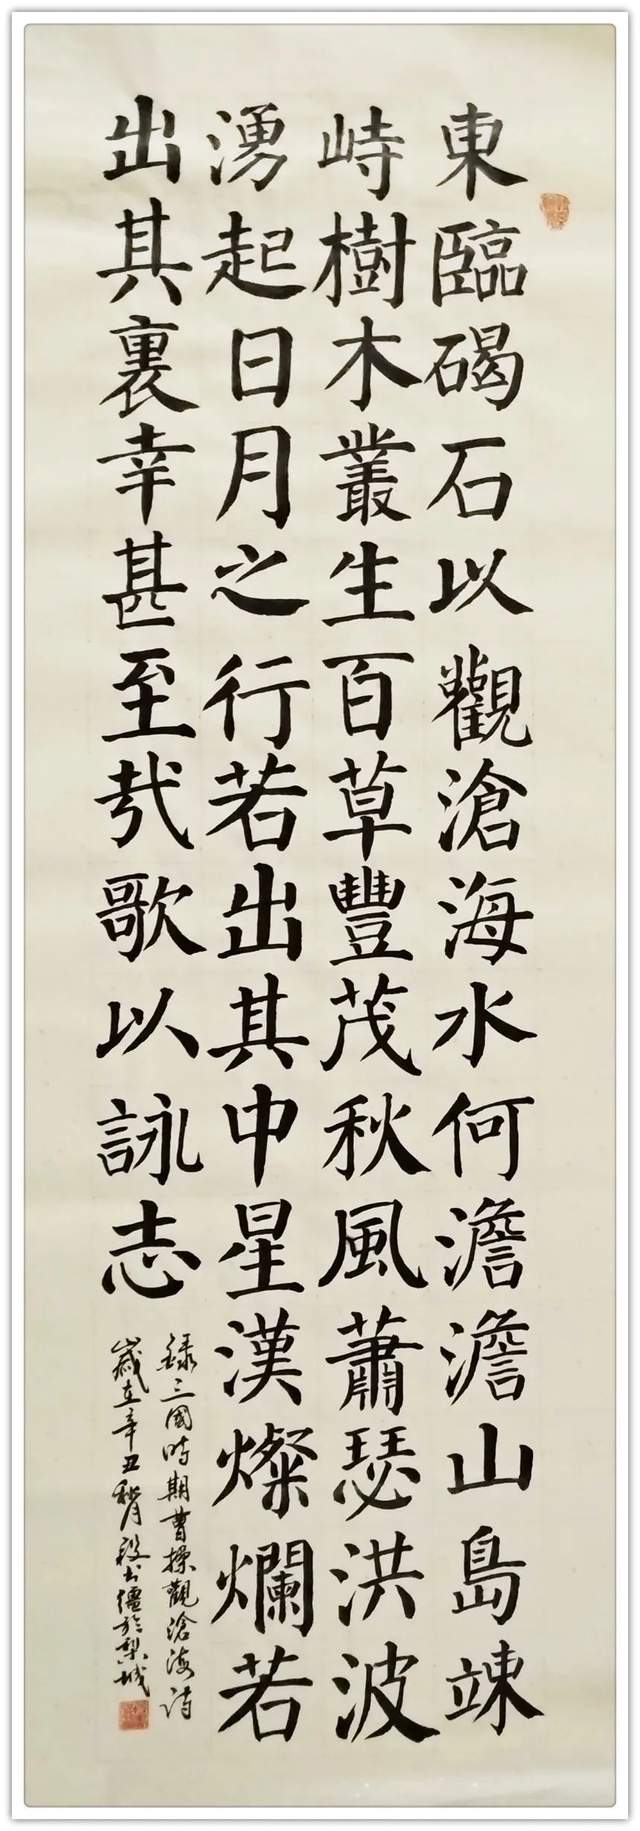 東臨碣石以觀滄海水何澹澹山島竦
峙樹木叢生百草豐茂秋風蕭瑟洪波
湧起日月之行若出其中星漢燦爛若
出其裏幸甚至哉歌以詠志
録三國時期曹操觀滄海詩
歲在辛丑秋月段疆於梨城